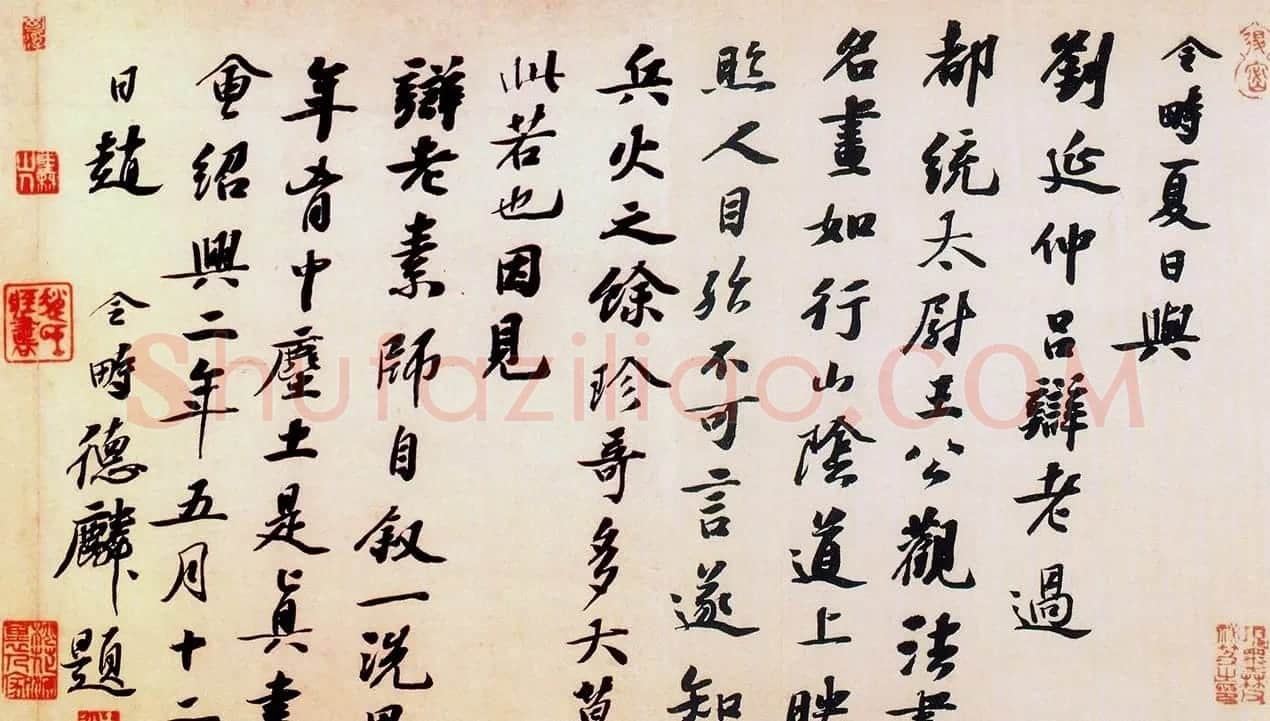 令畤夏日與
劉延仲呂辯老過
都統太尉王公觀法書
名畫如行山陰道上映
照人目殆不可言遂知
兵火之餘珍哥多大莫
此若也因見
辯老素師自叙一洗
年胷中塵土是真書
會紹興二年五月十二
日趙令畤德麟題
Shufaziliao.COM